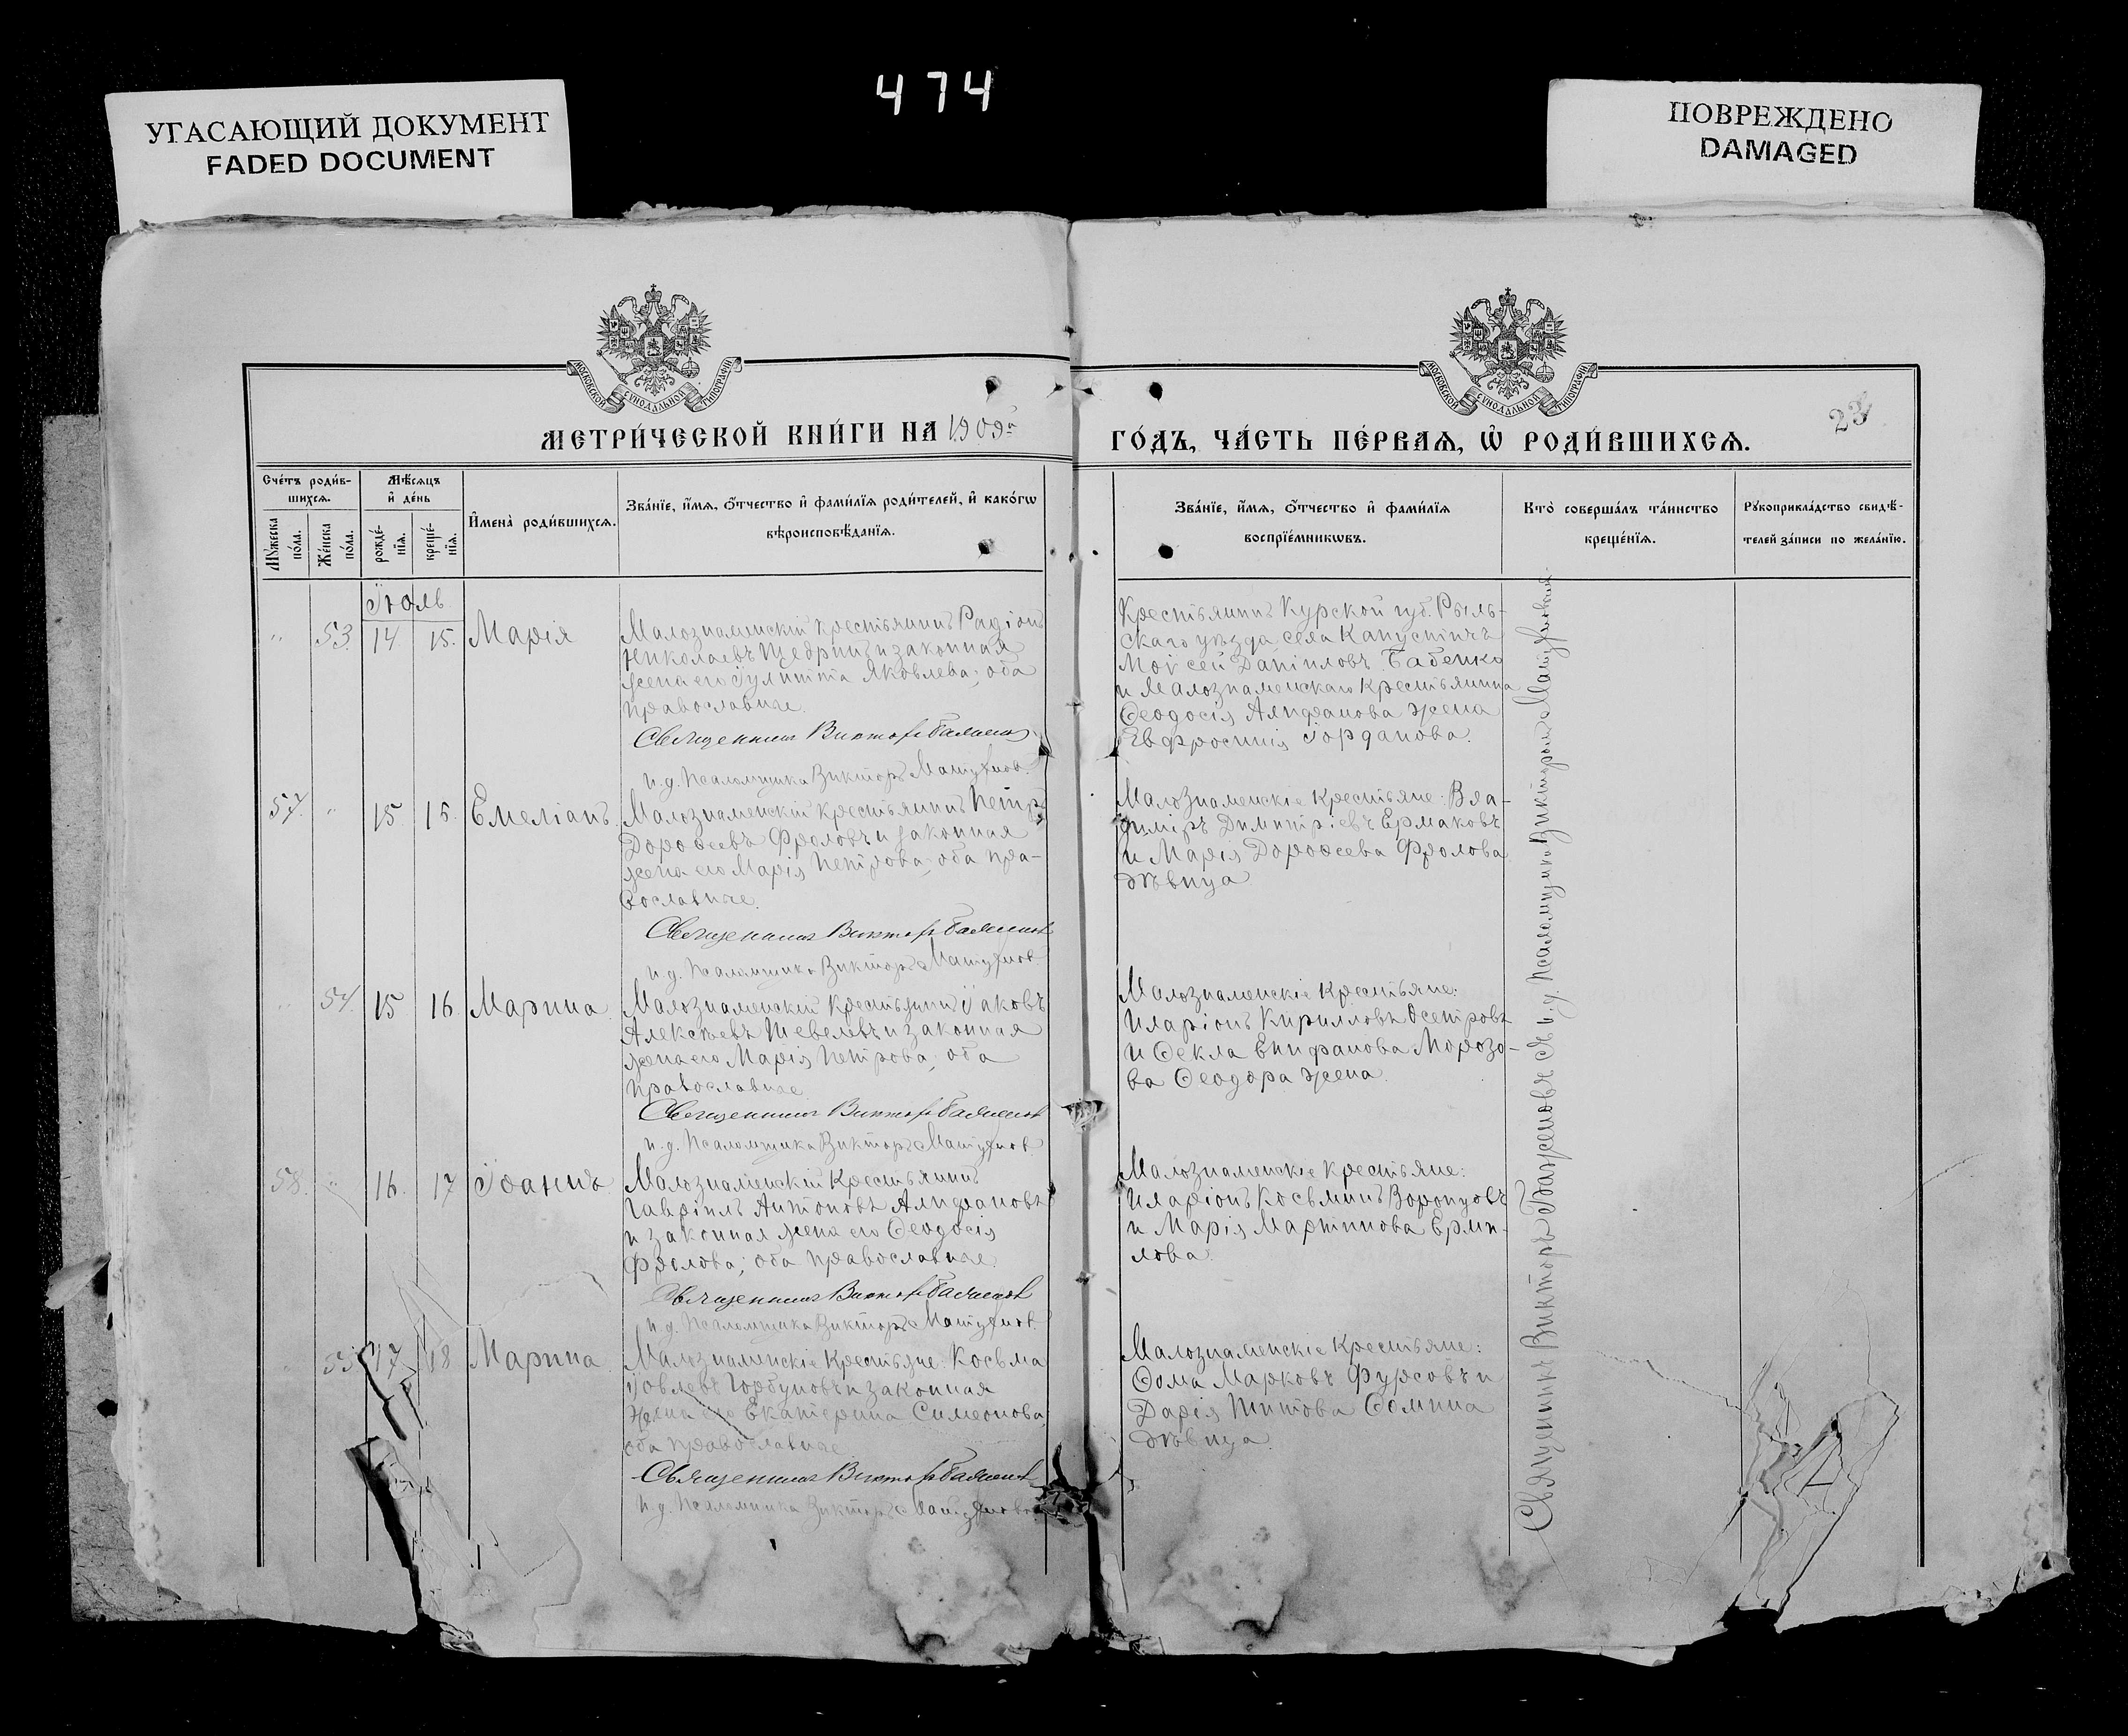 474
УГАСАЮЩИЙ ДОКУМЕНТ
FADED DOCUMENT
ПОВРЕЖДЕНО
DAMAGED
МОСКОВСКОЙ СУНОДАЛЬНОЙ ТИПОГРАФІИ
МОСКОВСКОЙ СУНОДАЛЬНОЙ ТИПОГРАФІИ
23
МЕТРИ́ЧЕСКОЙ КНИ́ГИ НА 1909 г.
ГО́ДЪ, ЧА́СТЬ ПЕ́РВАѦ, Ѡ҆ РОДИ́ВШИХСѦ.
Сче́тъ роди́в-
шихсѧ.
Мꙋ́жеска
по́ла.
Же́нска
по́ла.
Мѣ́сѧцъ
и҆ де́нь
рожде́-
нїѧ.
креще́-
нїѧ.
И҆мена̀ роди́вшихсѧ.
Зва́нїе, и҆́мѧ, ѻ҆́тчество и҆ фами́лїѧ роди́телей, и҆ како́гѡ
вѣроисповѣ́данїѧ.
Зва́нїе, и҆́мѧ, ѻ҆́тчество и҆ фами́лїѧ
воспрїе́мникѡвъ.
Кто̀ соверша́лъ та́инство
креще́нїѧ.
Рꙋкоприкла́дство свидѣ́-
телей за́писи по жела́нїю.
Іюль
" 53. 14. 15. Марія
Малознаменскій крестьянинъ Радіонъ
Николаевъ Щедринъ и законная
жена его Іулитта Яковлева; оба
православные.
Священникъ Викторъ Баженовъ
и. д. Псаломщика Викторъ Матузковъ.
Крестьянинъ Курской губ. Рыль-
скаго уѣзда, села Капустичъ
Моѵсей Даніиловъ Бабенко
и Малознаменскаго Крестьянина
Ѳеодосія Алифанова жена
Евфросинія Іорданова.
57. " 15. 15. Емеліанъ.
Малознаменскій крестьянинъ Петръ
Дороѳеевъ Фроловъ и законная
жена его Марія Петрова; оба пра-
вославные.
Священникъ Викторъ Баженовъ
и. д. Псаломщика Викторъ Матузковъ.
Малознаменскіе крестьяне: Вла-
диміръ Димитріевъ Ермаковъ
и Марія Дороѳеева Фролова
дѣвица
" 54. 15 16. Марина.
Малознаменскій крестьянинъ Іаковъ
Алексѣевъ Шевелевъ и законная
жена его Марія Петрова; оба
православные
Священникъ Викторъ Баженовъ
и. д. Псаломщика Викторъ Матузковъ.
Малознаменскіе крестьяне:
Иларіонъ Кирилловъ Осетровъ
и Ѳекла Епифанова Морозо-
ва Ѳеодора жена.
58. " 16. 17 Іоаннъ
Малознаменскій Крестьянинъ
Гавріилъ Антоновъ Алифановъ
и законная жена его Ѳеодосія
Фролова; оба православные.
Священникъ Викторъ Баженовъ
и. д. Псаломщика Викторъ Матузковъ.
Малознаменскіе крестьяне:
Иларіонъ Косьминъ Воронцовъ
и Марія Мартинова Ерми-
лова.
55 17. 18 Марина
Малознаменскіе Крестьяне: Косьма
Іовлевъ Горбуновъ и законная
жена его Екатерина Симеонова
оба православные
Священникъ Викторъ Баженовъ
и. д. Псаломщика Викторъ Матузковъ
Малознаменскіе Крестьяне:
Ѳома Марковъ Фурсовъ и
Дарія Титова Ѳомина
дѣвица.
Священникъ Викторъ Баженовъ съ и. д. Псаломщика Викторомъ Матузковымъ.